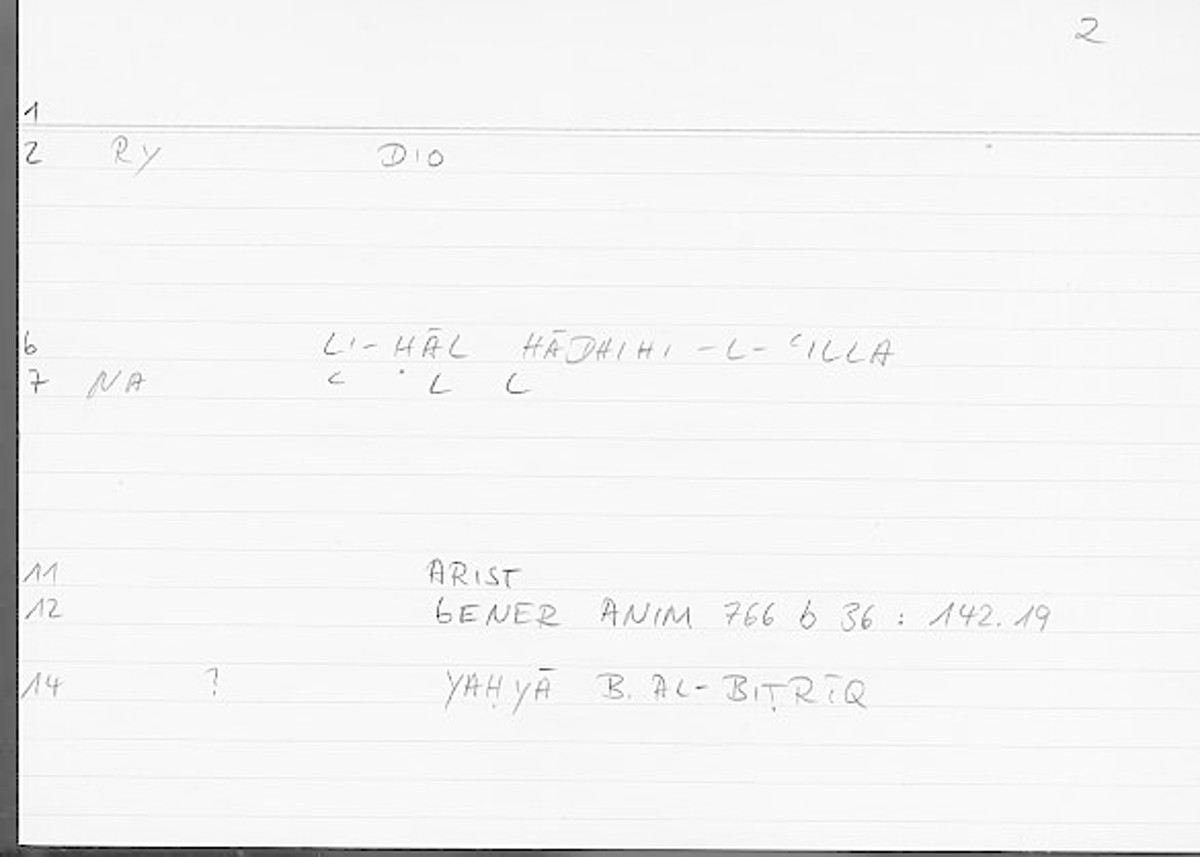 2
1
2 RY DIO
6 LI-HĀL HĀDHIHI-L-ʿILLA
7 NA ʿ L L
11 ARIST
12 GENER ANIM 766 b 36 : 142.19
14 ? YAḤYĀ B. AL-BIṬRĪQ